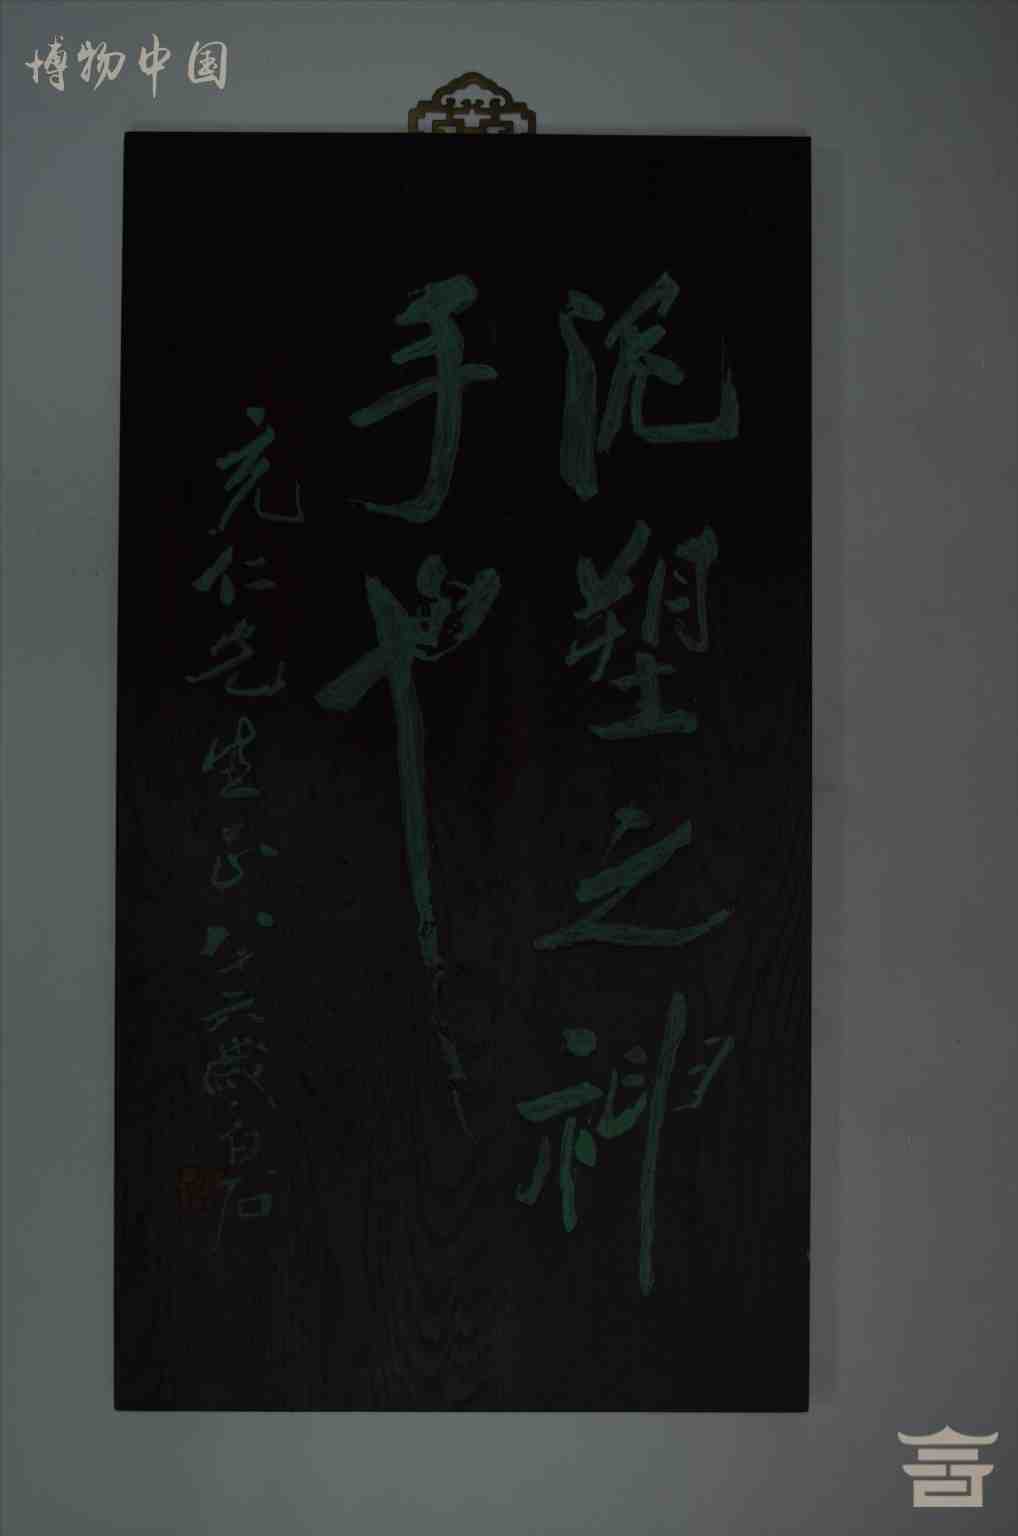 博物中国
泥塑之神
手也
充仁先生 八十六歲白石